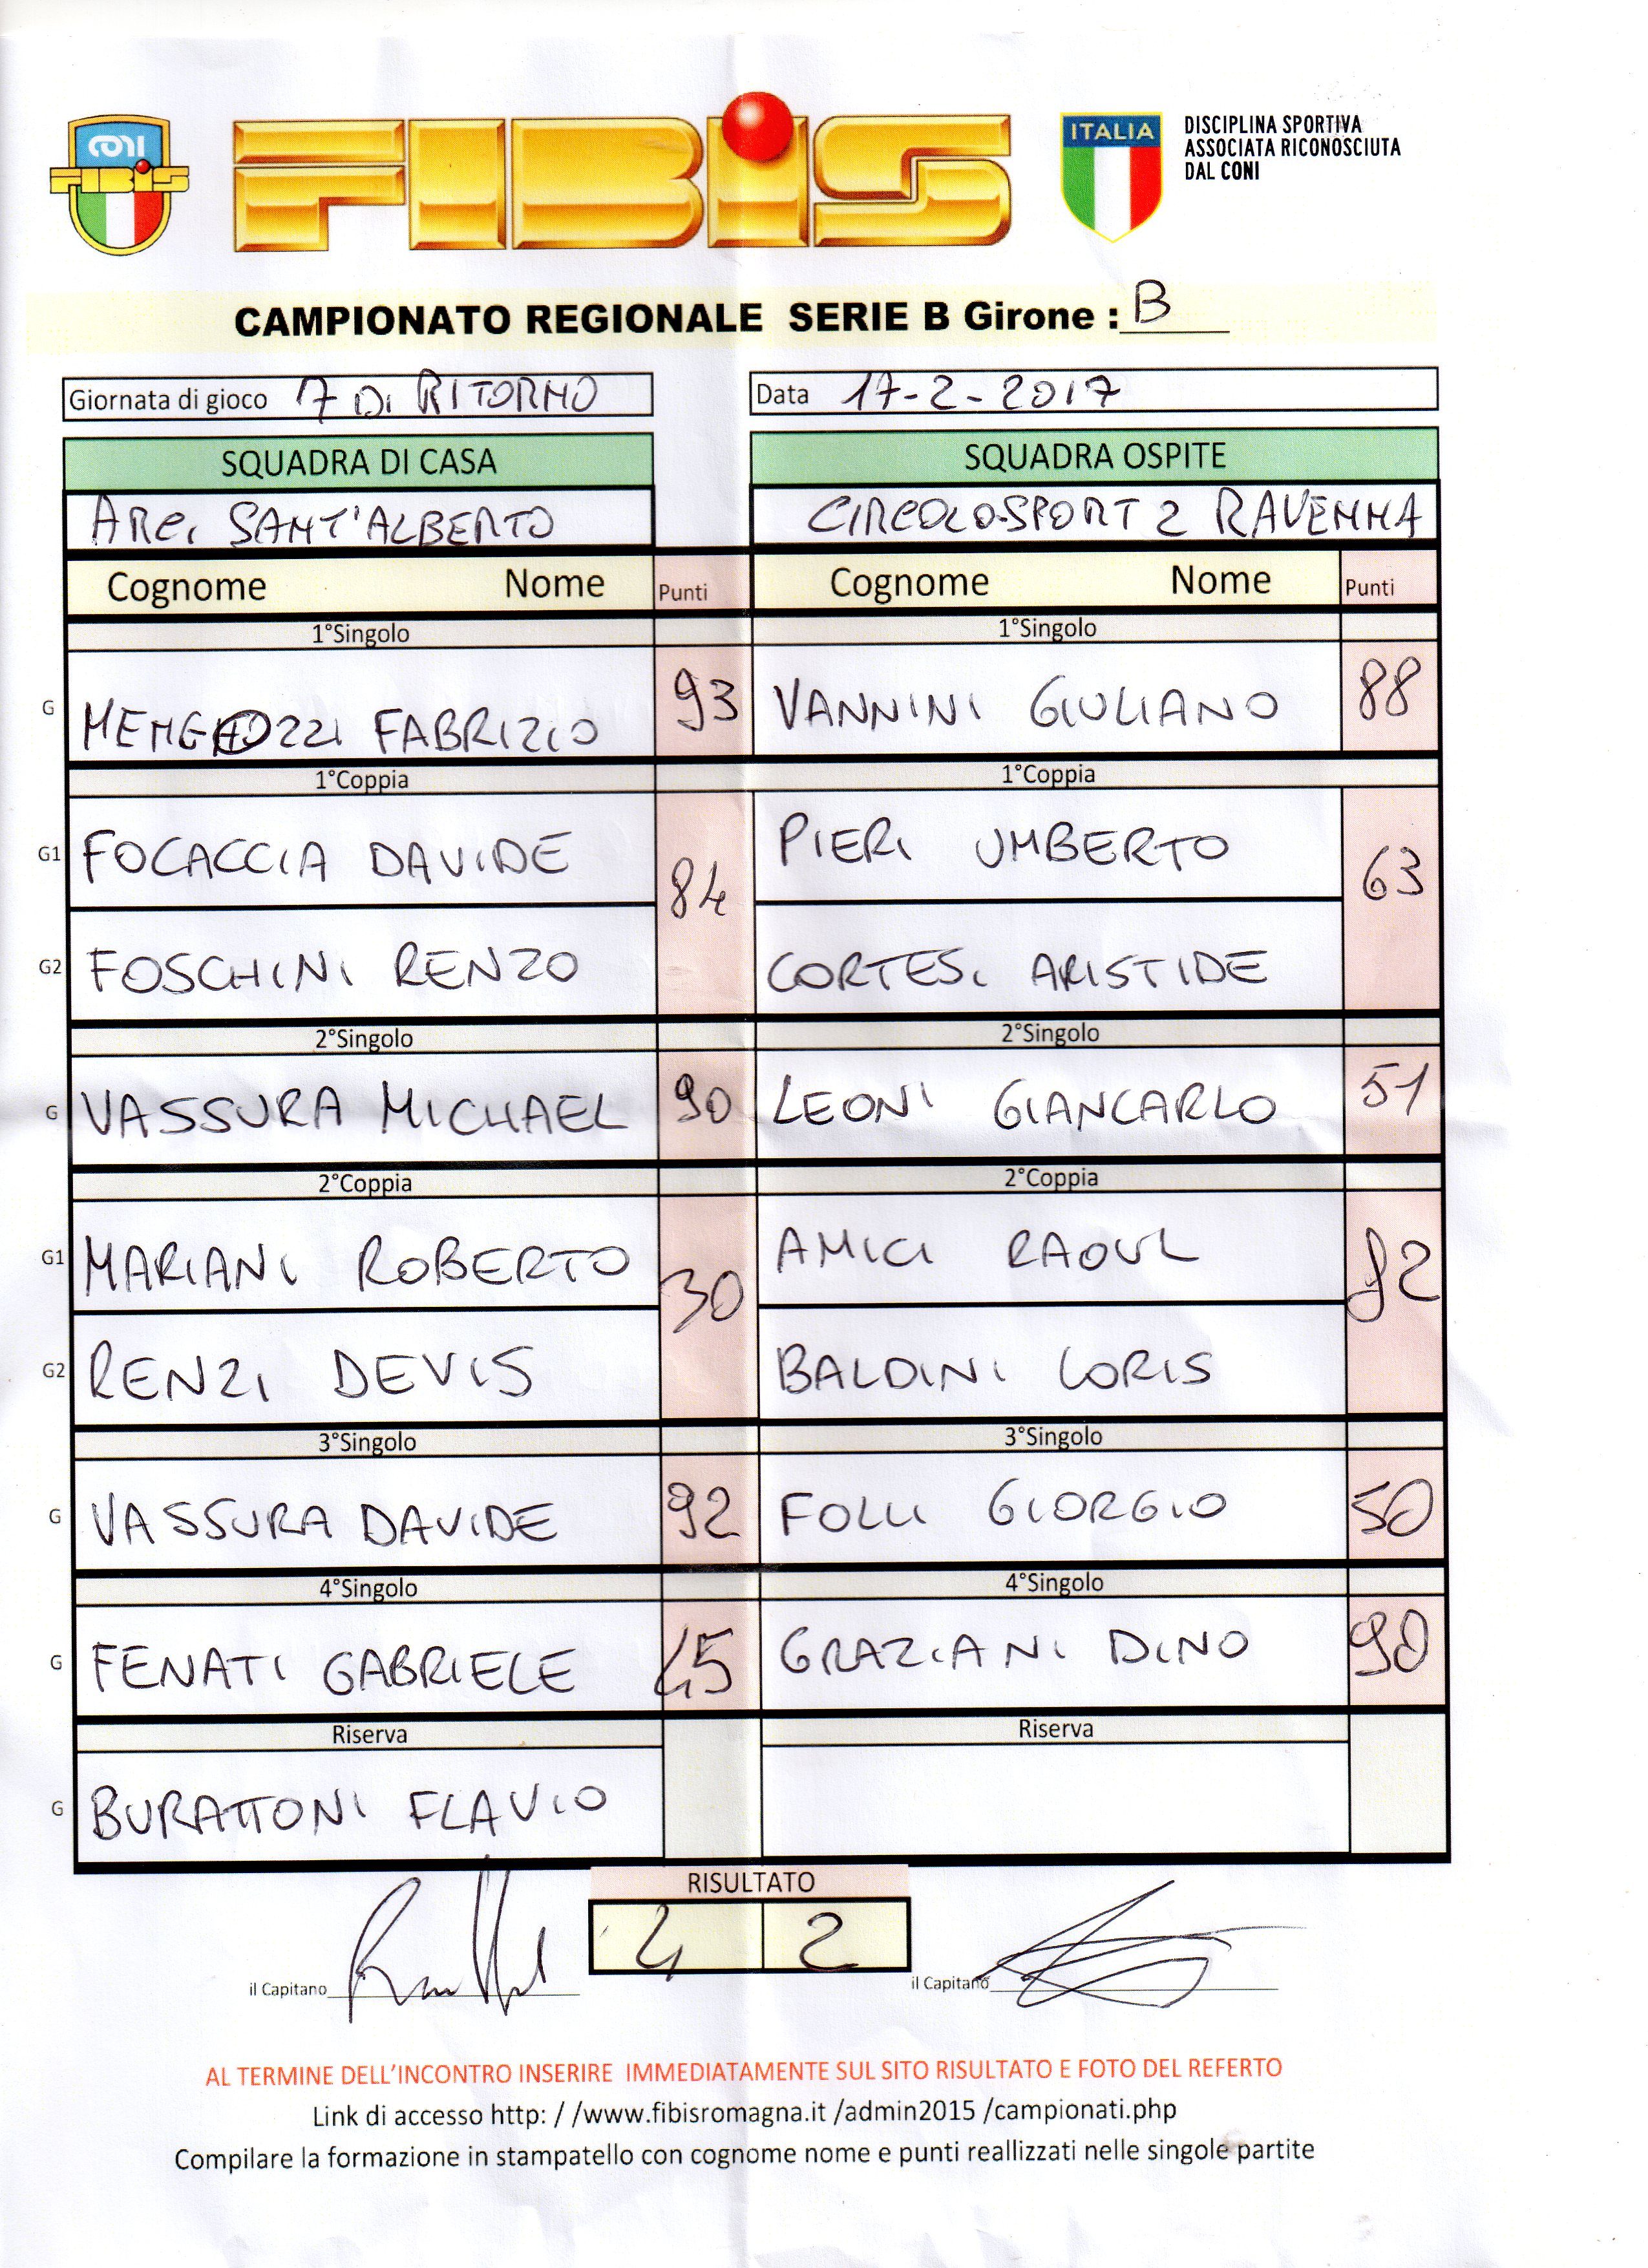 CONI
FIBIS
FIBIS
ITALIA
DISCIPLINA SPORTIVA
ASSOCIATA RICONOSCIUTA
DAL CONI
CAMPIONATO REGIONALE SERIE B Girone : B
Giornata di gioco 7 Di RITORNO
Data 17-2-2017
SQUADRA DI CASA
SQUADRA OSPITE
ARCi SANT'ALBERTO
CIRCOLO SPORT 2 RAVENNA
Cognome Nome Punti Cognome Nome Punti
1°Singolo 1°Singolo
G MENGOZZI FABRIZIO 93 VANNINI GIULIANO 88
1°Coppia 1°Coppia
G1 FOCACCIA DAVIDE 84 PIERI UMBERTO 63
G2 FOSCHINI RENZO CORTESI ARISTIDE
2°Singolo 2°Singolo
G VASSURA MICHAEL 90 LEONI GIANCARLO 51
2°Coppia 2°Coppia
G1 MARIANI ROBERTO 30 AMICI RAOUL 82
G2 RENZI DEVIS BALDINI LORIS
3°Singolo 3°Singolo
G VASSURA DAVIDE 92 FOLLI GIORGIO 50
4°Singolo 4°Singolo
G FENATI GABRIELE 45 GRAZIANI DINO 90
Riserva Riserva
G BURATTONI FLAVIO
RISULTATO
4 2
il Capitano il Capitano
AL TERMINE DELL'INCONTRO INSERIRE IMMEDIATAMENTE SUL SITO RISULTATO E FOTO DEL REFERTO
Link di accesso http: / /www.fibisromagna.it /admin2015 /campionati.php
Compilare la formazione in stampatello con cognome nome e punti reallizzati nelle singole partite